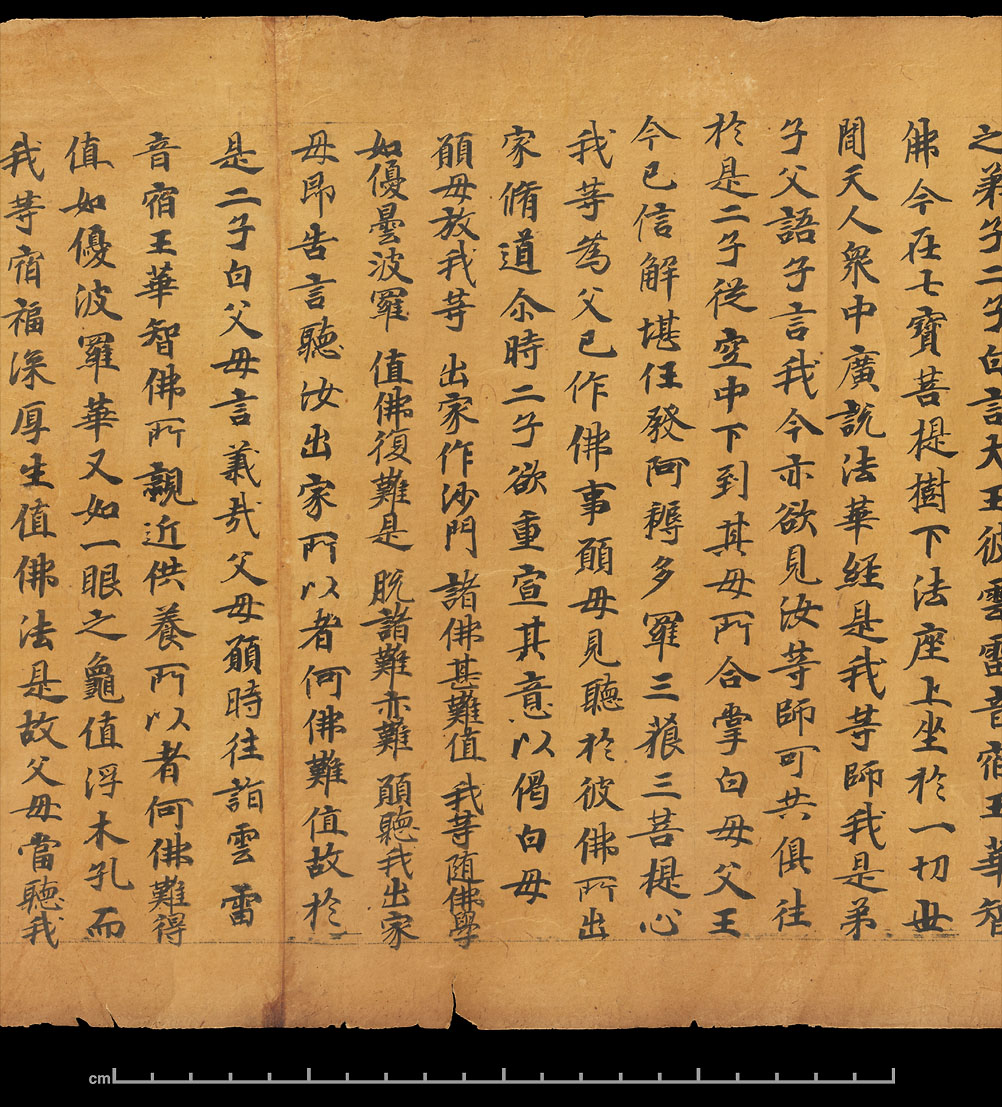 之弟子二子白言大王彼雲雷音宿王華智
佛今在七寶菩提樹下法座上坐於一切世
間天人衆中廣說法華經是我等師我是弟
子父語子言我今亦欲見汝等師可共俱往
於是二子從空中下到其母所合掌白母父王
今已信解堪任發阿耨多羅三藐三菩提心
我等為父已作佛事願母見聽於彼佛所出
家脩道尒時二子欲重宣其意以偈白母
願母放我等 出家作沙門 諸佛甚難值 我等隨佛學
如優曇波羅 值佛復難是 脫諸難亦難 願聽我出家
母即告言聽汝出家所以者何佛難值故於
是二子白父母言善哉父母願時往詣雲雷
音宿王華智佛所親近供養所以者何佛難得
值如優波羅華又如一眼之龜值浮木孔而
我等宿福深厚生值佛法是故父母當聽我